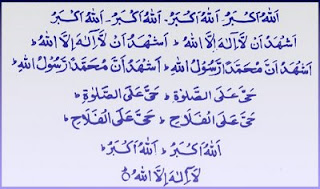 اَللهُ اَكْبَرُ اَللهُ اَكْبَرُ۔ اَللهُ اَكْبَرُ۔ اَللهُ اَكْبَرُ
اَشْهَدُ اَنْ لَّآ اِلٰهَ اِلَّا اللهُ ؕ اَشْهَدُ اَنْ لَّآ اِلٰهَ اِلَّا اللهُ ؕ
اَشْهَدُ اَنَّ مُحَمَّدًا رَّسُوْلُ اللهِ ؕ اَشْهَدُ اَنَّ مُحَمَّدًا رَّسُوْلُ اللهِ ؕ
حَیَّ عَلَی الصَّلٰوةِ ؕ حَیَّ عَلَی الصَّلٰوةِ ؕ
حَیَّ عَلَی الْفَلَاحِ ؕ حَیَّ عَلَی الْفَلَاحِ ؕ
اَللهُ اَكْبَرُ ؕ اَللهُ اَكْبَرُ ؕ
لَآ اِلٰهَ اِلَّا اللهُ ۝